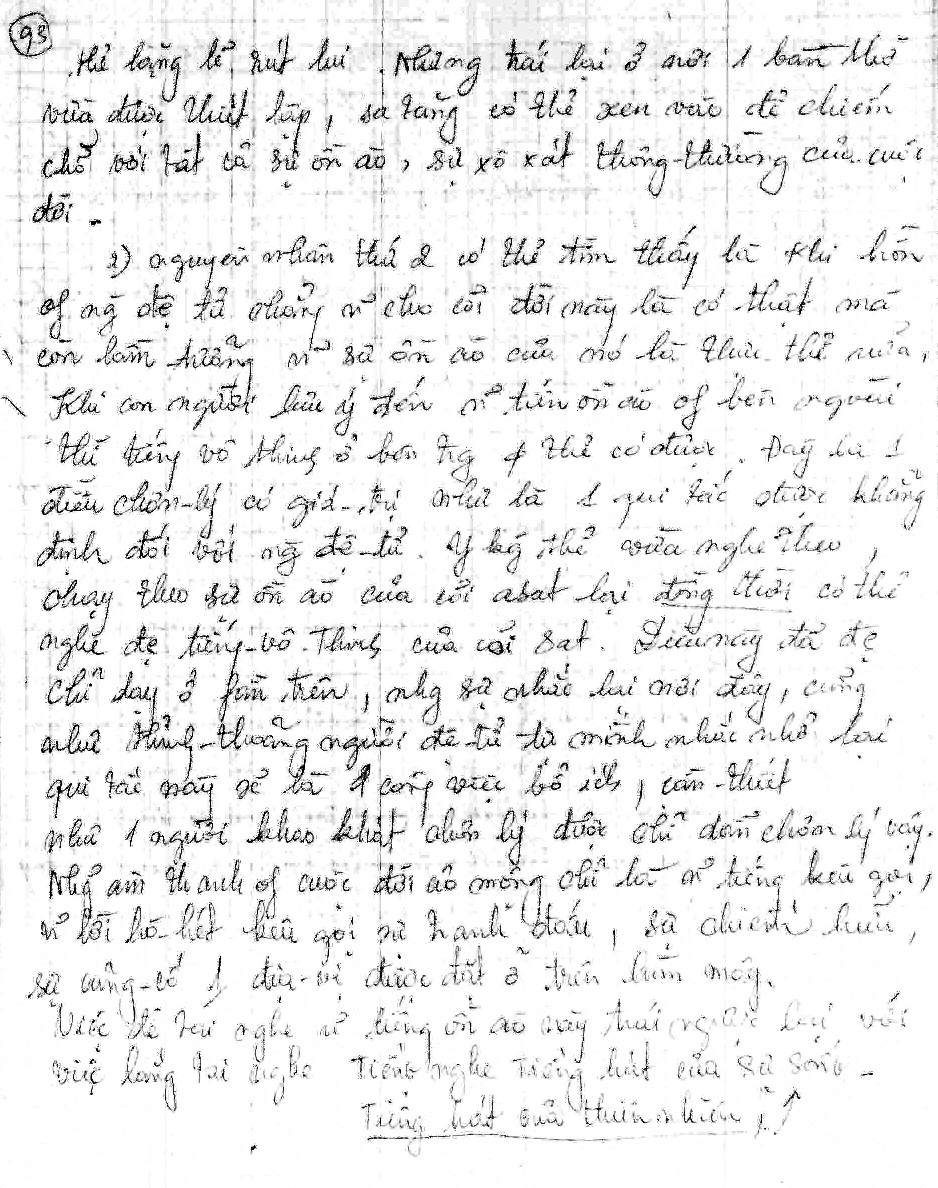 93
thể lặng lẽ rút lui. Nhưng trái lại ở nơi 1 bàn thờ
vừa được thiết lập, sa tăng có thể xen vào để chiếm
chỗ với tất cả sự ồn ào, sự xô xát thông-thường của cuộc
đời -
2) nguyên nhân thứ 2 có thể tìm thấy là khi hồn
of ng đệ tử chẳng n~ cho cõi đời này là có thật mà
còn lầm tưởng n~ sự ồn ào của nó là thực thể nữa,
Khi con người lưu ý đến n~ tiếng ồn ào of bên ngoài
thì tiếng vô thinh ở bên tg thể có được. Đây là 1
điều chơn-lý có giá-trị như là 1 qui tắc được khẳng
định đối với ng đệ-tử. Y kg thể vừa nghe theo,
chạy theo sự ồn ào của cõi asat lại đồng thời có thể
nghe đc tiếng-vô-Thinh của cõi Sat. Điều này đã đc
chỉ dạy ở fần trên, nhg sự nhắc lại nơi đây, cũng
như thỉnh-thoảng người đệ-tử tự mình nhắc nhở lại
qui tắc này sẽ là 1 công việc bổ ích, cần-thiết
như 1 người khao khát chơn lý được chỉ dẫn chơn lý vậy.
Như âm thanh of cuộc đời ảo mộng chỉ là n~ tiếng kêu gọi,
n~ lời hò-hét kêu gọi sự tranh đấu, sự chiếm hữu,
sự củng-cố 1 địa-vị được đặt ở trên lùm mây.
Việc để tai nghe n~ tiếng ồn ào này trái ngược lại với
việc lắng tai nghe Tiếng nghe Tiếng hát của sự sống -
Tiếng hát của thiên nhiên